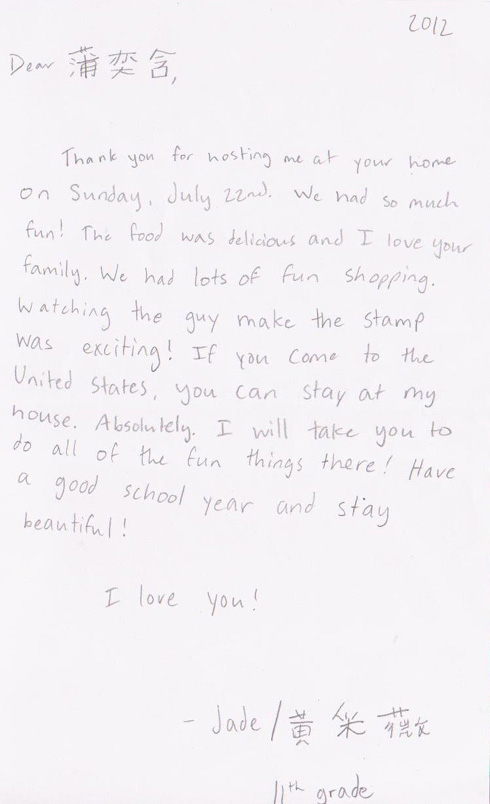 2012
Dear 蒲奕含,
Thank you for hosting me at your home
on Sunday, July 22nd. We had so much
fun! The food was delicious and I love your
family. We had lots of fun shopping.
Watching the guy make the stamp
was exciting! If you come to the
United States, you can stay at my
house. Absolutely. I will take you to
do all of the fun things there! Have
a good school year and stay
beautiful!
I love you!
- Jade/黄采薇
11th grade